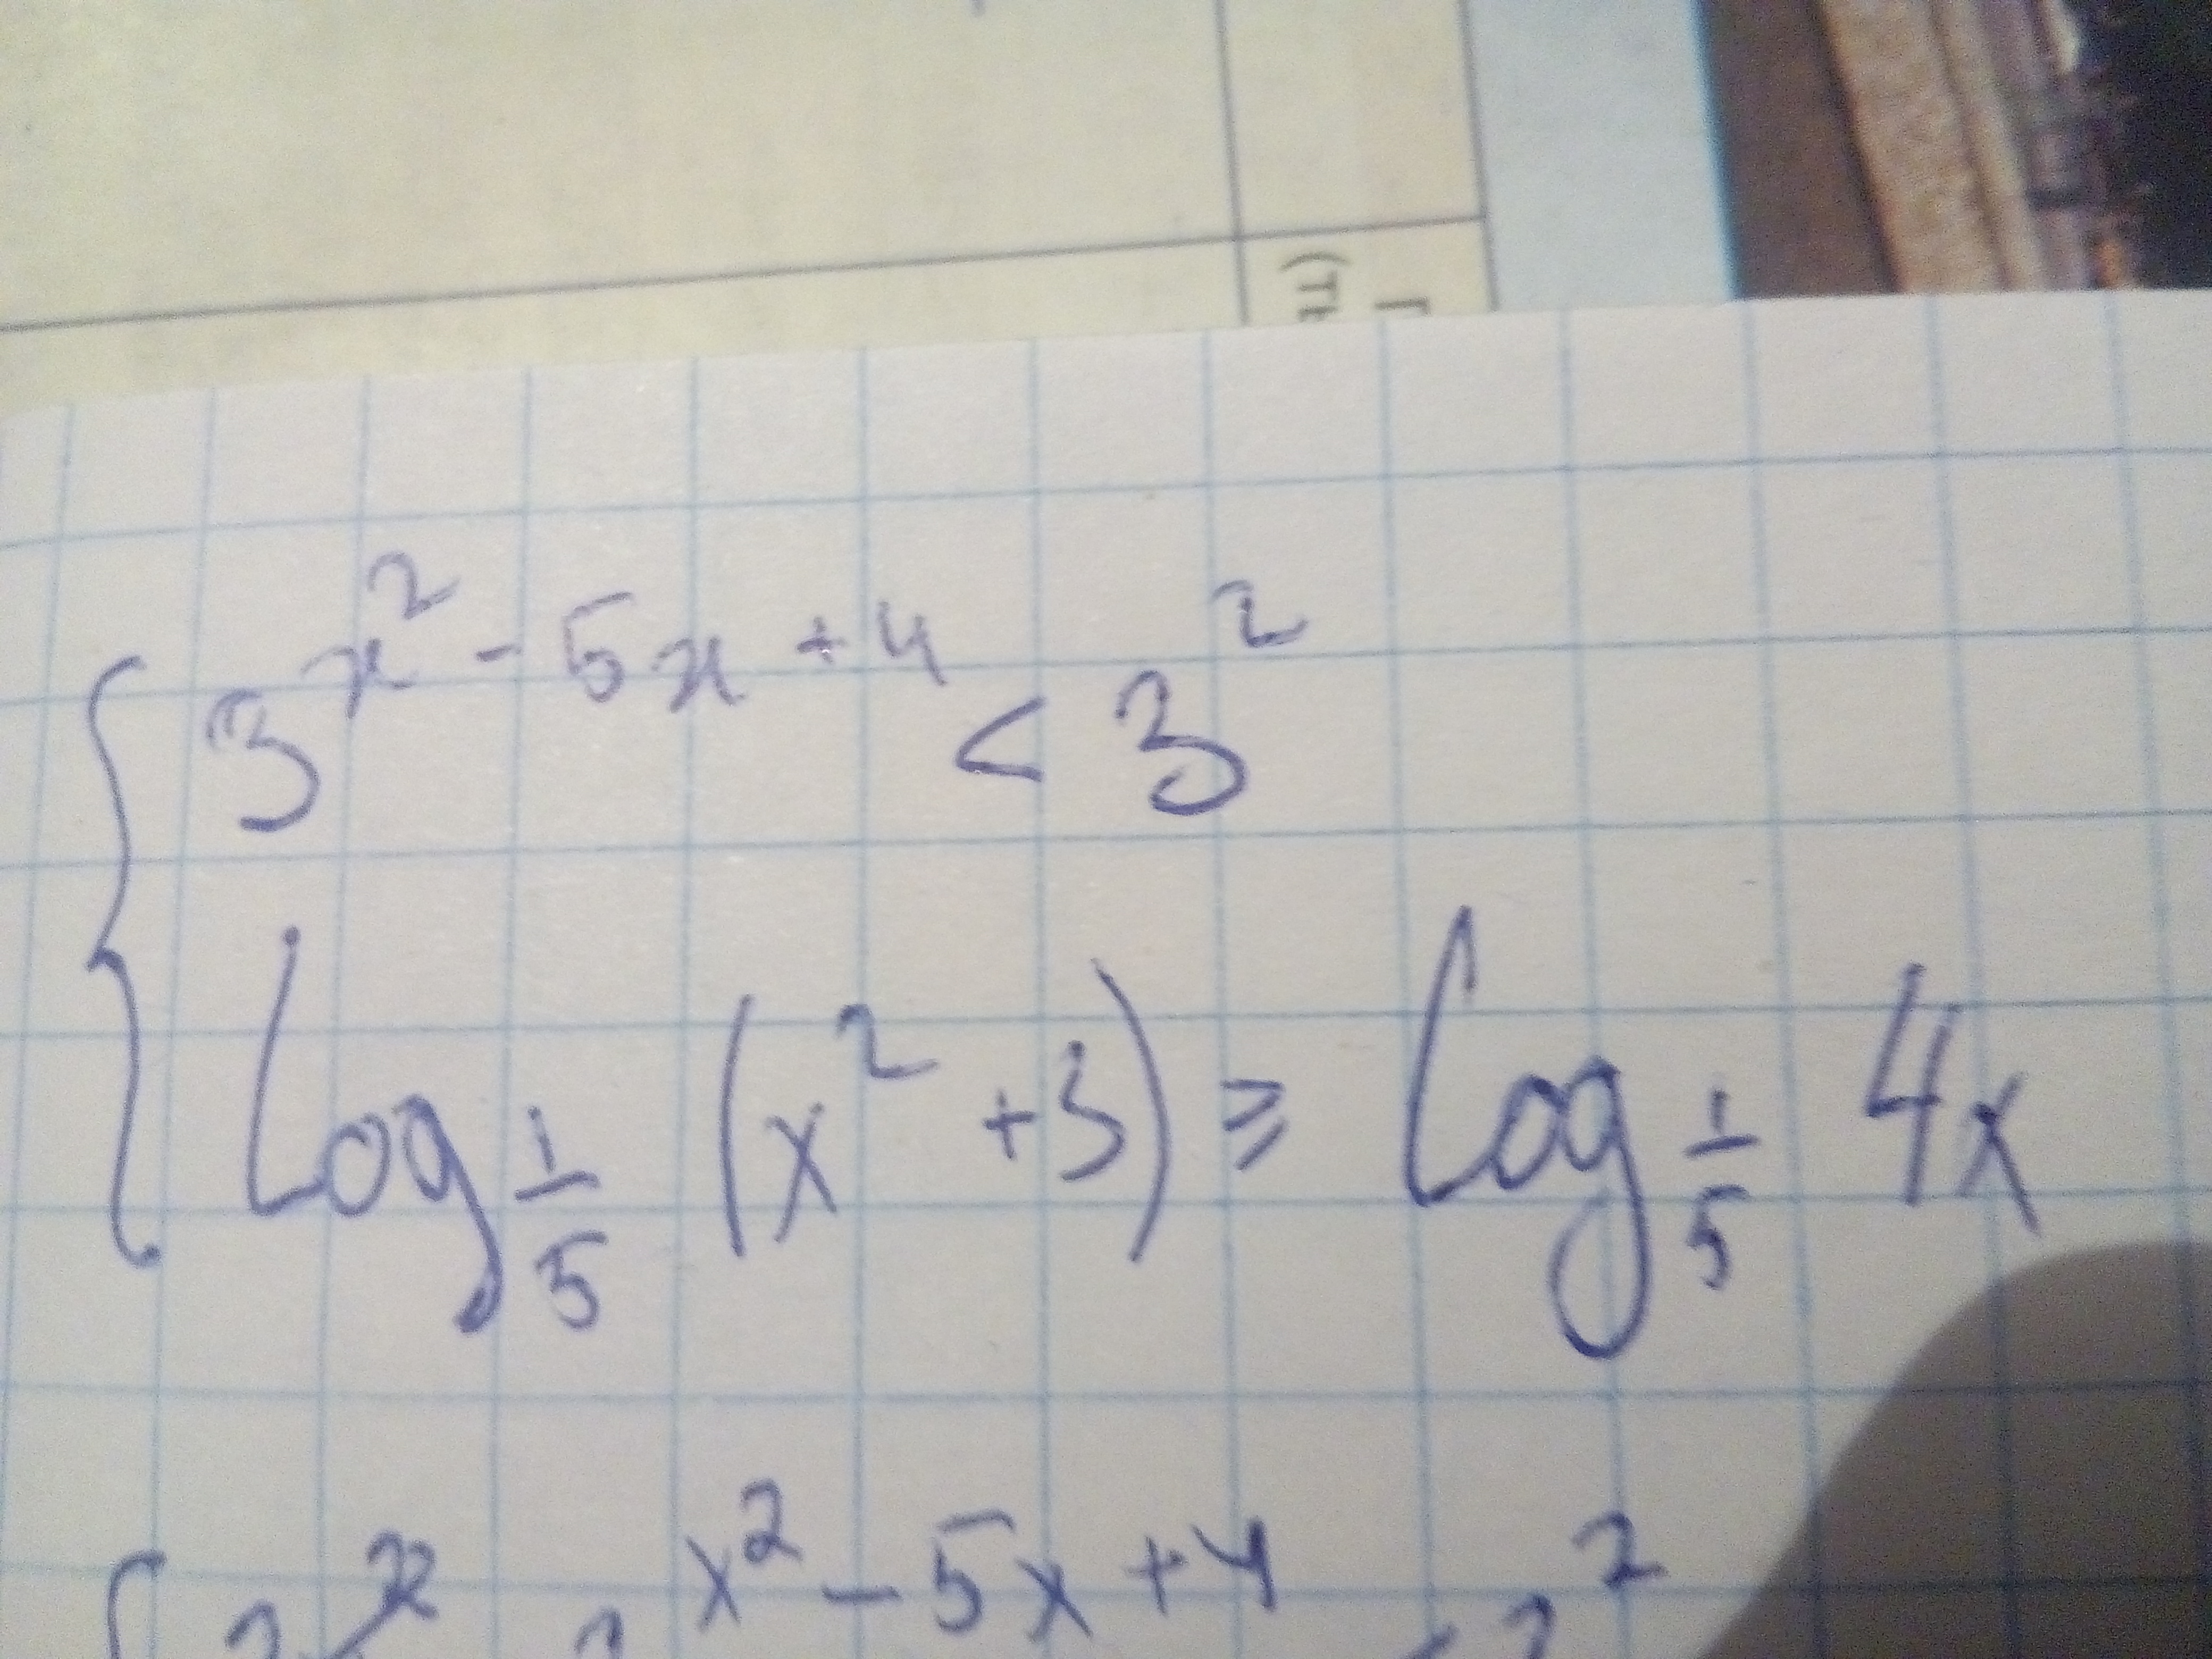 (ть
Г
{ 3^{x^2 - 5x + 4} < 3^2
log_{1/5} (x^2 + 3) ≥ log_{1/5} 4x
x^2 - 5x + 4 2